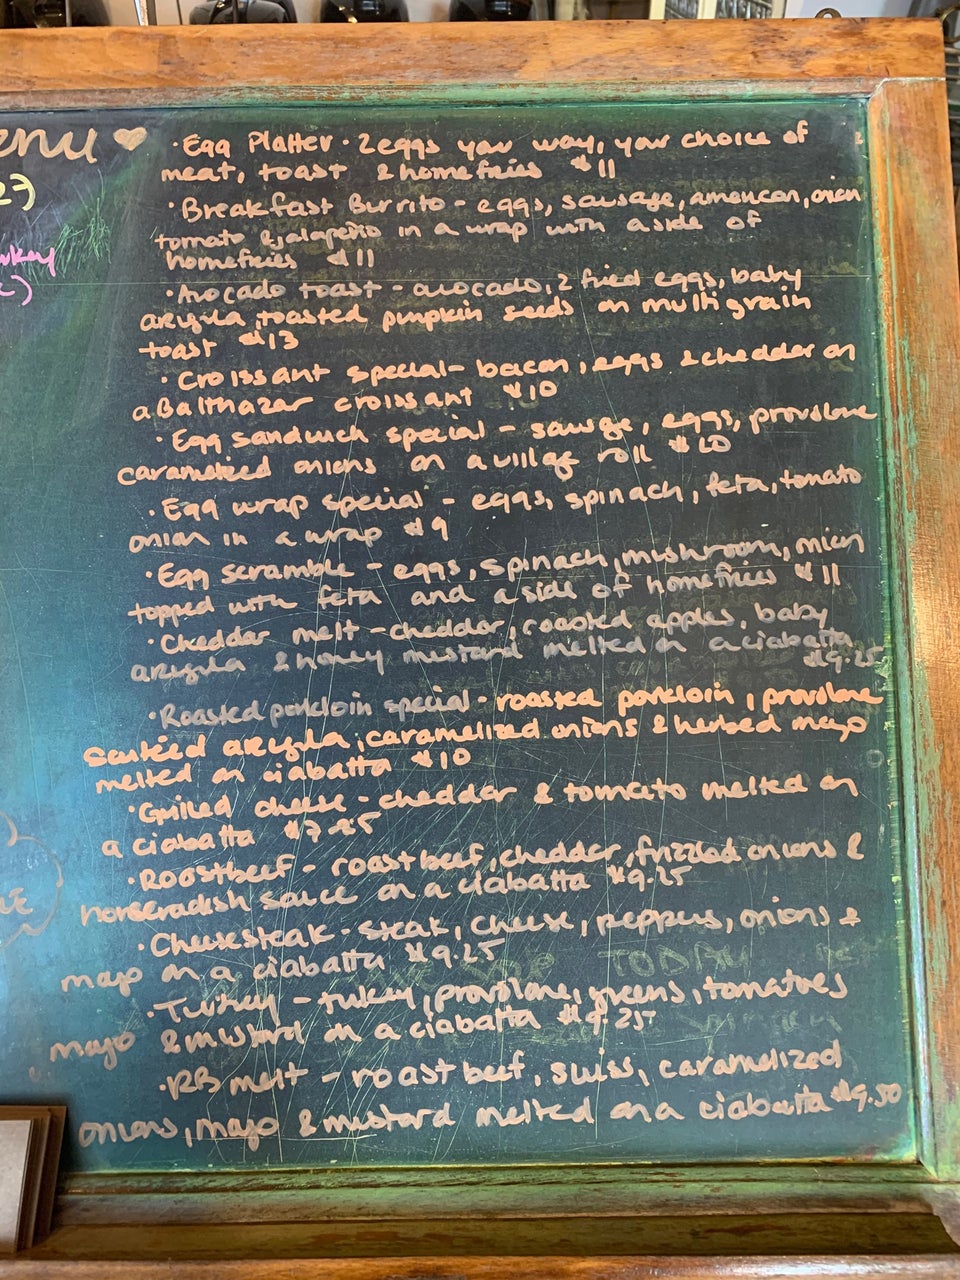 enu ♥
27)
· Egg Platter · 2 eggs your way, your choice of
meat, toast & homefries $11
· Breakfast Burrito - eggs, sausage, american, onion
tomato & jalapeño in a wrap with a side of
homefries $11
· Avocado toast - avocado, 2 fried eggs, baby
arugula, toasted pumpkin seeds on multigrain
toast $13
· Croissant special - bacon, eggs & cheddar on
a Balthazar croissant $10
· Egg sandwich special - sausge, eggs, provolone
caramelized onions on a village roll $10
· Egg wrap special - eggs, spinach, feta, tomato
onion in a wrap $9
· Egg scramble - eggs, spinach, mushroom, onion
topped with feta and a side of homefries $11
· Cheddar melt - cheddar, roasted apples, baby
arugula & honey mustard melted on a ciabatta
$9.25
· Roasted porkloin special - roasted porkloin, provolone
arugula, caramelized onions & herbed mayo
melted on ciabatta $10
· Grilled cheese - cheddar & tomato melted on
a ciabatta $7.25
· Roastbeef - roast beef, cheddar, frizzled onions &
horseradish sauce on a ciabatta $9.25
· Cheesesteak - steak, cheese, peppers, onions &
mayo on a ciabatta $9.25
· Turkey - tukey, provolone, greens, tomatoes
mayo & mustard on a ciabatta $9.25
· RB melt - roast beef, swiss, caramelized
onions, mayo & mustard melted on a ciabatta $9.50